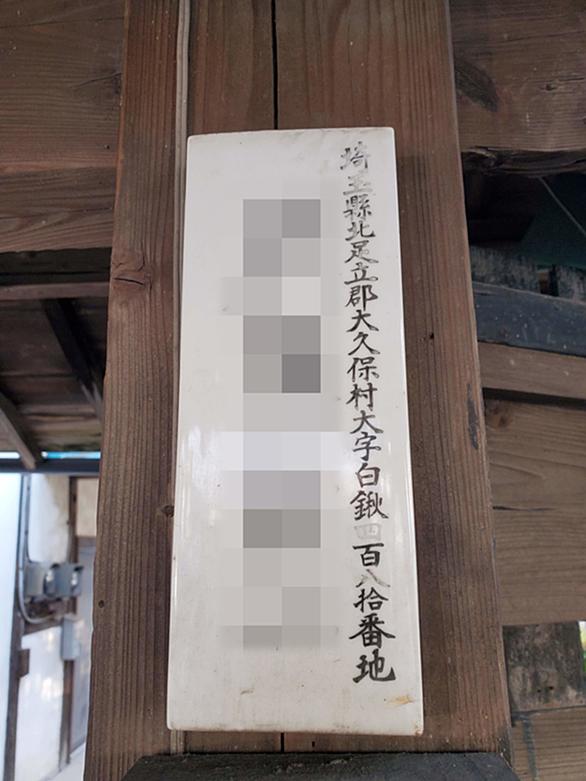 埼玉縣北足立郡大久保村大字白鍬四百八拾番地